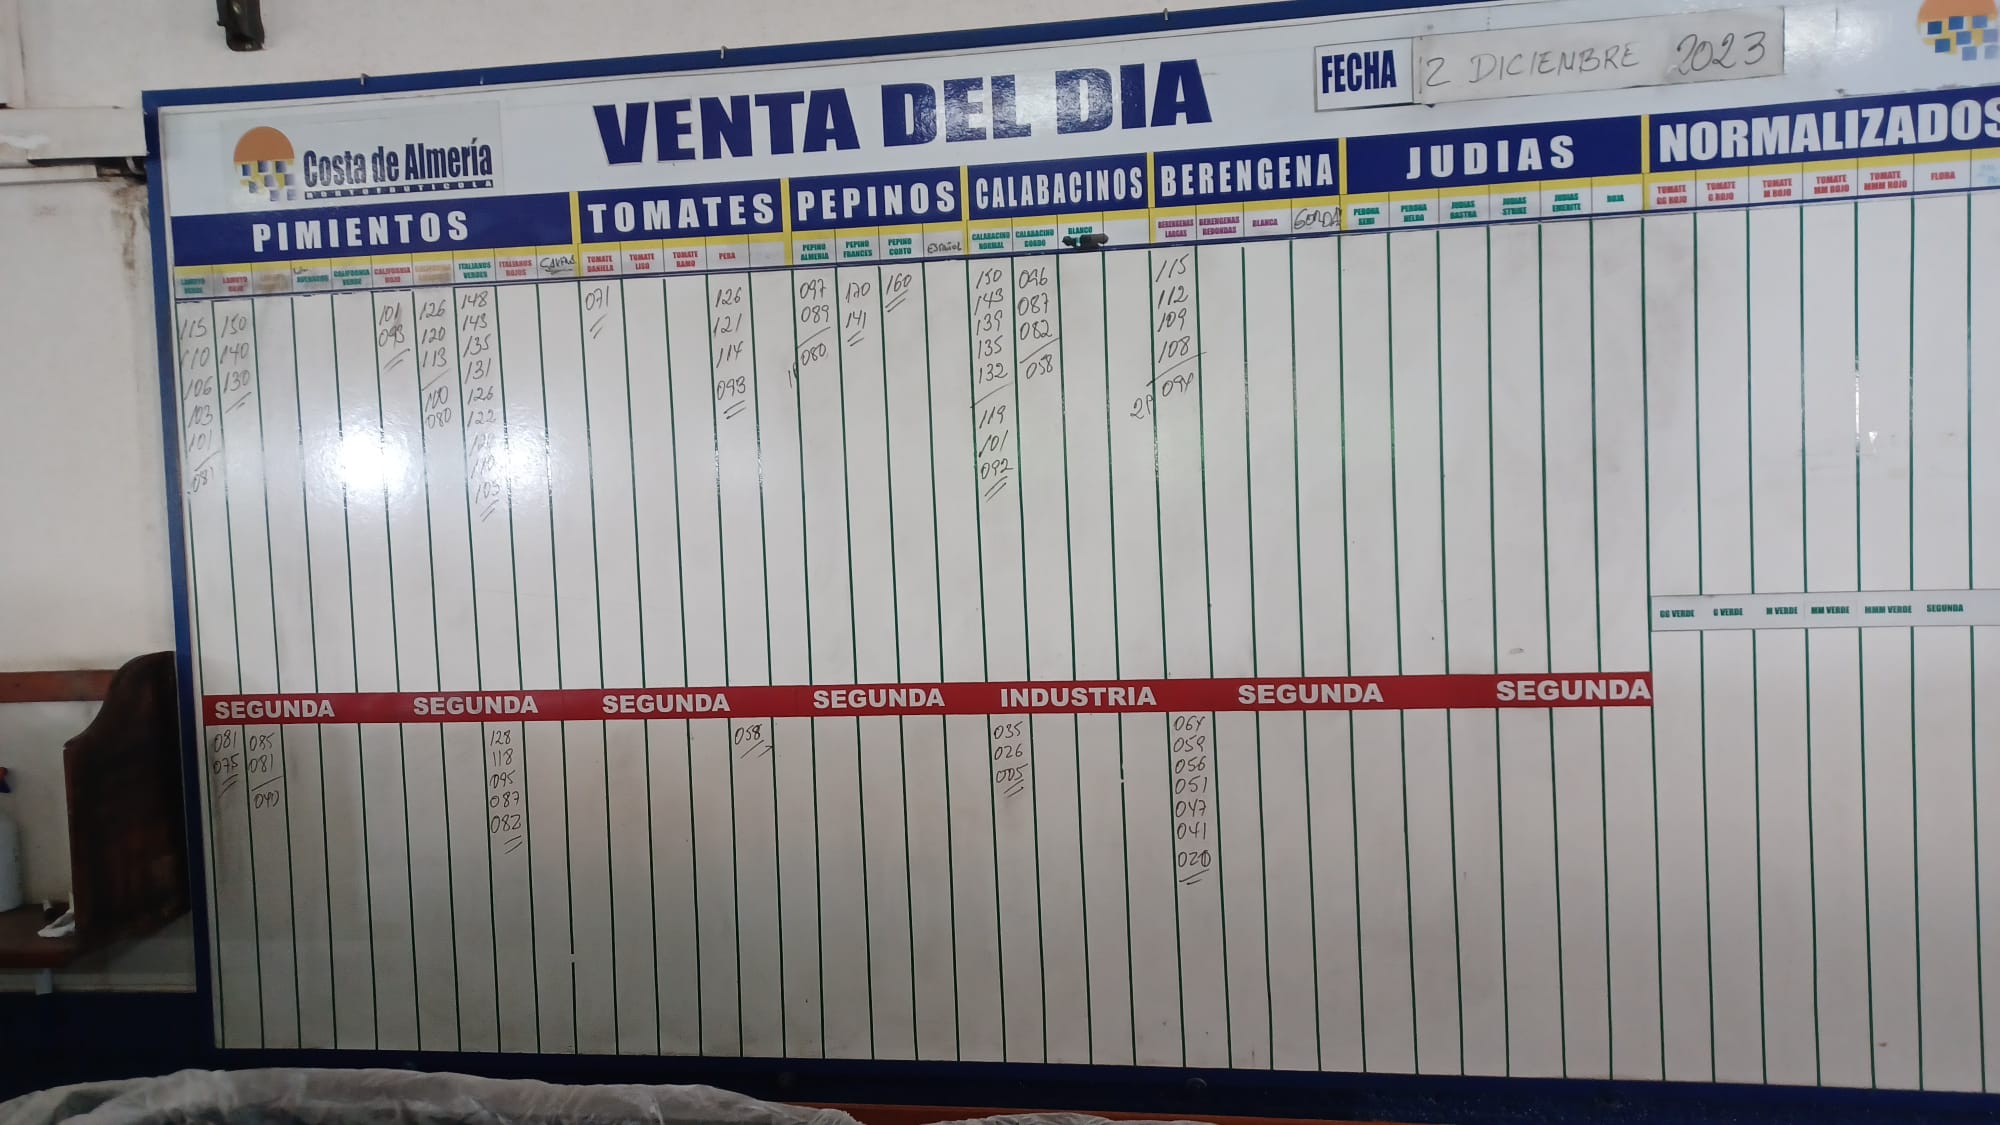 VENTA DEL DIA
FECHA
2 DICIEMBRE 2023
Costa de Almería
HORTOFRUTICOLA
PIMIENTOS
TOMATES
PEPINOS
CALABACINOS
BERENGENA
JUDIAS
NORMALIZADOS
LAMUYO VERDE
LAMUYO ROJO
CALIFORNIA VERDE
CALIFORNIA ROJO
ITALIANOS VERDES
ITALIANOS ROJOS
TOMATE DANIELA
TOMATE LISO
TOMATE RAMO
PERA
PEPINO ALMERIA
PEPINO FRANCES
PEPINO CORTO
ESPAÑOL
CALABACINO NORMAL
CALABACINO GORDO
BLANCO
BERENGENAS LARGAS
BERENGENAS REDONDAS
BLANCA
GORDA
PERONA SEMI
PERONA HELDA
JUDIAS RASTRA
JUDIAS STRIKE
JUDIAS EMERITE
ROJA
TOMATE GG ROJO
TOMATE G ROJO
TOMATE M ROJO
TOMATE MM ROJO
TOMATE MMM ROJO
FLORA
115
110
106
103
101
081
150
140
130
101
093
126
120
113
100
080
148
143
135
131
126
122
105
071
126
121
114
093
097
089
080
170
141
160
150
143
139
135
132
119
101
092
096
087
082
058
115
112
109
108
2P
GG VERDE
G VERDE
M VERDE
MM VERDE
MMM VERDE
SEGUNDA
SEGUNDA
SEGUNDA
SEGUNDA
SEGUNDA
INDUSTRIA
SEGUNDA
SEGUNDA
081
075
085
081
040
128
118
095
087
082
058
035
026
005
064
059
056
051
047
041
020